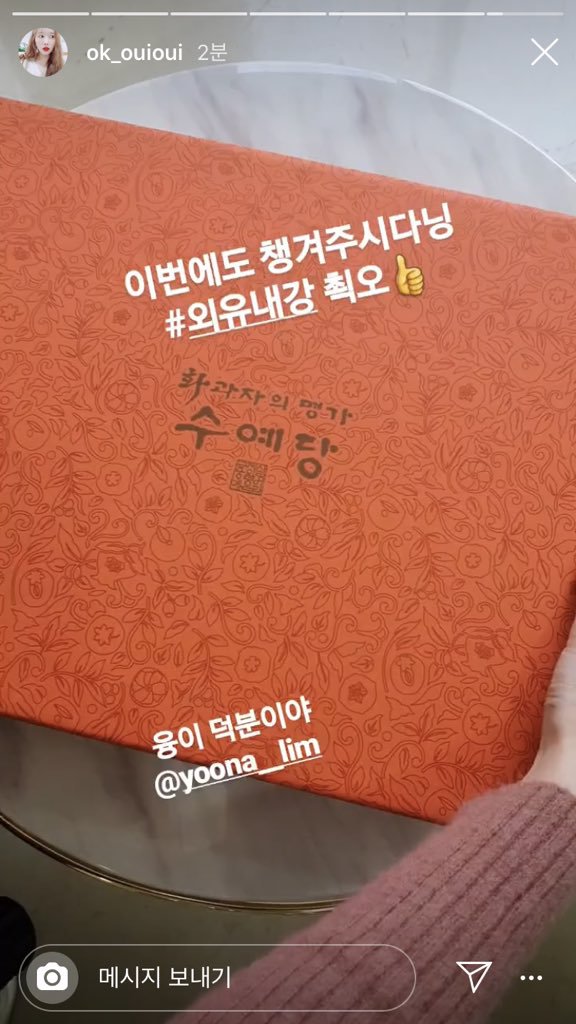 ok_ouioui 2분
이번에도 챙겨주시다닝
#외유내강 쵝오👍
화과자의 명가
수예당
융이 덕분이야
@yoona__lim
메시지 보내기